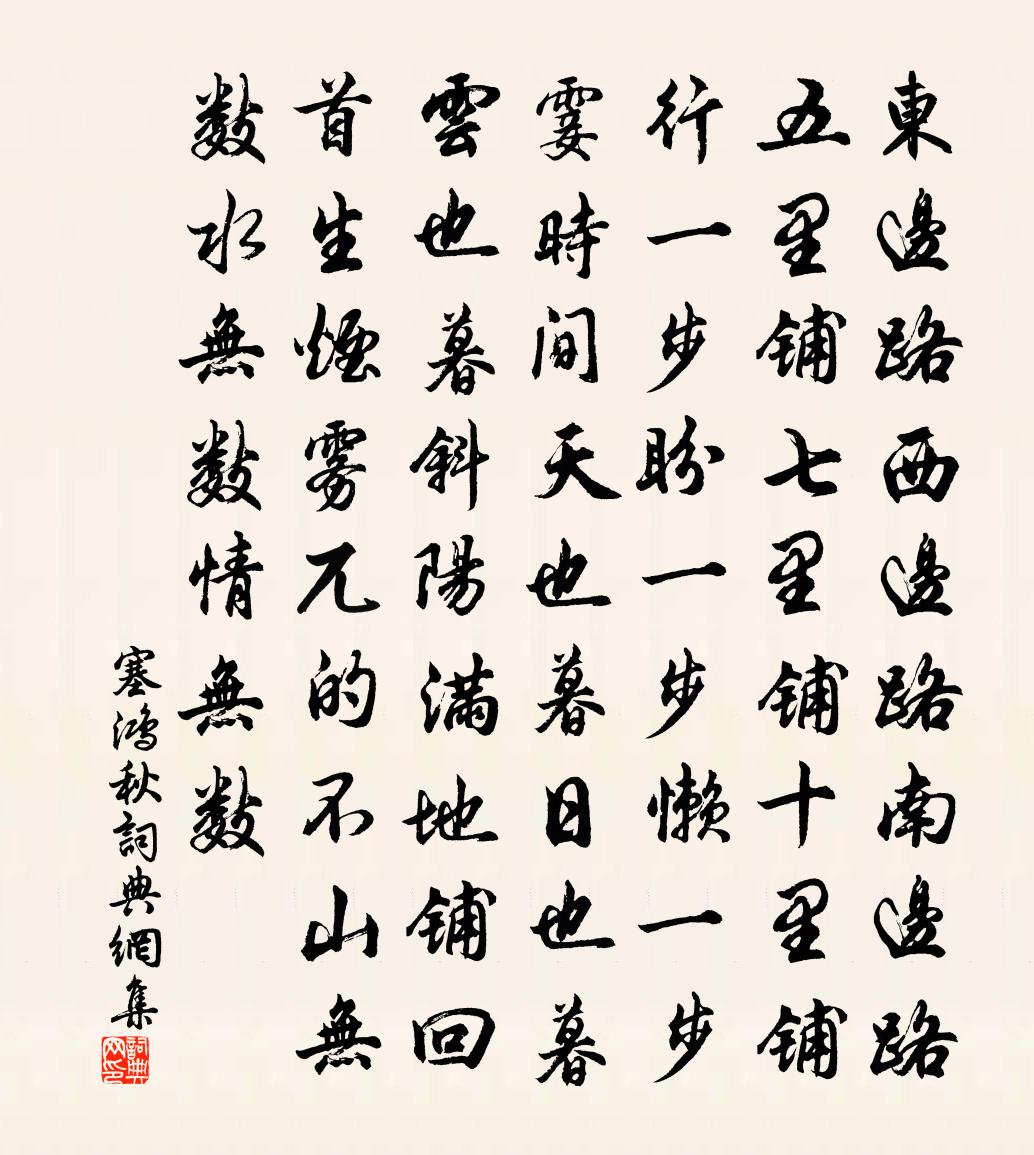 東邊路西邊路南邊路
五里鋪七里鋪十里鋪
行一步盼一步懶一步
霎時間天也暮日也暮
雲也暮斜陽滿地鋪回
首生煙霧兀的不山無
數水無數情無數
塞鴻秋詞典網集
詞典网印